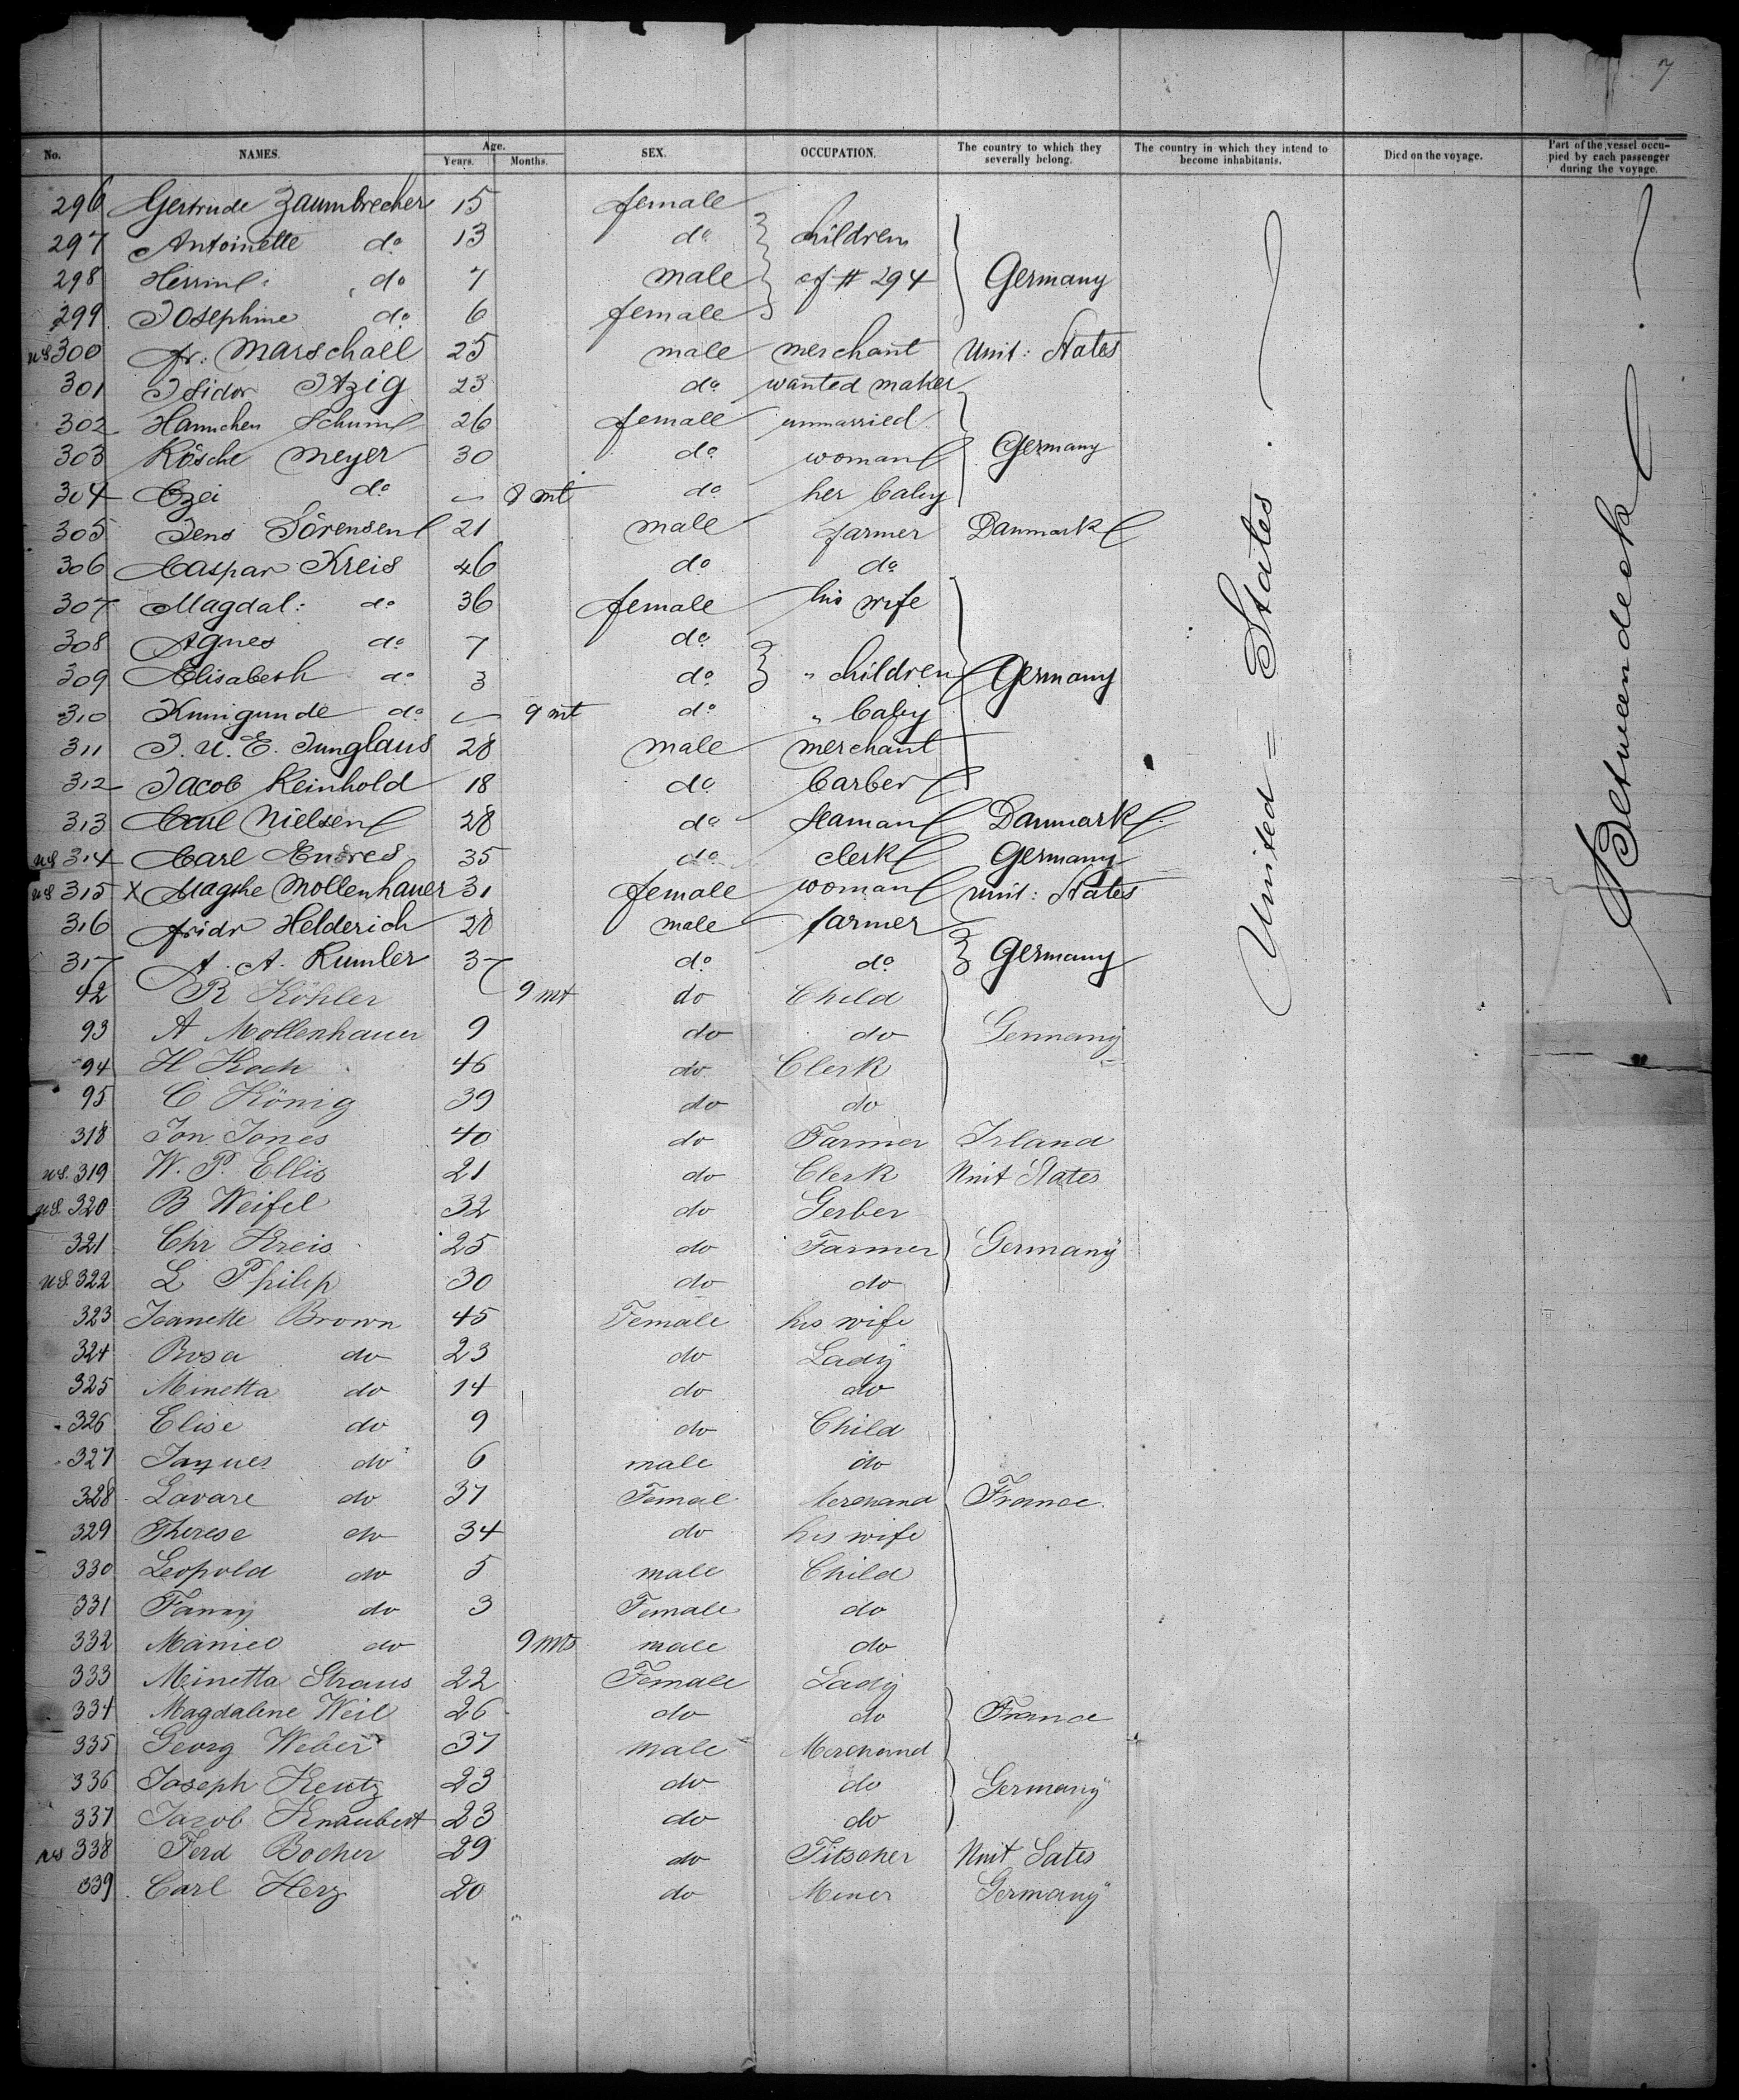 7
No. NAMES. Age. Years. Months. SEX. OCCUPATION. The country to which they severally belong. The country in which they intend to become inhabitants. Died on the voyage. Part of the vessel occupied by each passenger during the voyage.
296 Gertrude Zaumbrecher 15 female
297 Antoinette do 13 do children
298 do 7 male of # 294 Germany
299 Josephine do 6 female
us 300 Fr: Marschall 25 male merchant Unit: States
301 Isidor Itzig 23 do wanted maker
302 Hannchen Schum 26 female unmarried
303 Rösche Meyer 30 do woman Germany
304 do 8 mt do her baby
305 Jens Sörensen 21 male farmer Danmark
306 Caspar Kreis 46 do do
307 Magdal: do 36 female his wife
308 Agnes do 7 do
309 Elisabeth do 3 do " children Germany
310 Kunigunde do 9 mt do " baby
311 J. U. E. Junglaus 28 male merchant
312 Jacob Reinhold 18 do barber
313 Carl Nielsen 28 do seaman Danmark
us 314 Carl Endres 35 do clerk Germany
us 315 X Magthe Mollenhauer 31 female woman Unit: States
316 Fridr Helderich 28 male farmer
317 A. A. Rumler 37 do do Germany
42 R Köhler 9 mt do Child
93 A Mollenhauer 9 do do Germany
94 H Koch 46 do Clerk
95 C König 39 do do
318 Jon Jones 40 do Farmer Irland
us. 319 W. P. Ellis 21 do Clerk Unit States
us. 320 B Weifel 32 do Gerber
321 Chr Kreis 25 do Farmer Germany
us. 322 L Philip 30 do do
323 Jeanette Brown 45 Female his wife
324 Rosa do 23 do Lady
325 Minetta do 14 do do
326 Elise do 9 do Child
327 Jaques do 6 male do
328 Lavare do 37 Femal Merchand France.
329 Therese do 34 do his wife
330 Leopold do 5 male Child
331 Fanny do 3 Female do
332 do 9 mts male do
333 Minetta Straus 22 Female Lady
334 Magdalene Weil 26 do do France
335 Georg Weber 37 male Merchand
336 Joseph Keutz 23 do do Germany
337 Jacob Knaubert 23 do do
us 338 Ferd Bocher 29 do Titscher Unit Sates
339 Carl Herz 20 do Miner Germany
United = States.
Betweendeck.